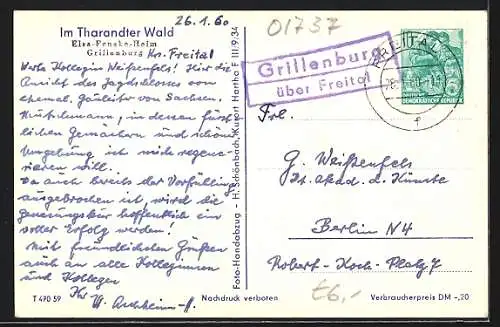 26.1.60
01737
Im Tharandter Wald
Elsa-Fenske-Heim
Grillenburg Kr. Freital
Werte Kollegin Weißenfels! Hier die
Ansicht des Jagdschlosses vom
ehemal. Gauleiter von Sachsen.
Mutschmann, in dessen fürst-
lichen Gemächern und schöner
Umgebung ich mich regene-
rieren will.
Da auch bereits der Vorfrühling
ausgebrochen ist, wird die
Genesungskur hoffentlich ein
voller Erfolg werden!
Mit freundlichsten Grüßen
auch an alle Kolleginnen
und Kollegen
Ihr
T 490 59
Foto-Handabzug - H. Schönbach, Kurort Hartha F III/9/34
Nachdruck verboten
Grillenburg
über Freital
FREITAL
DEUTSCHE DEMOKRATISCHE REPUBLIK
f
Frl.
G. Weißenfels
Dt. Akad. d. Künste
Berlin N4
Robert-Koch-Platz 7
€6,-
Verbraucherpreis DM -,20